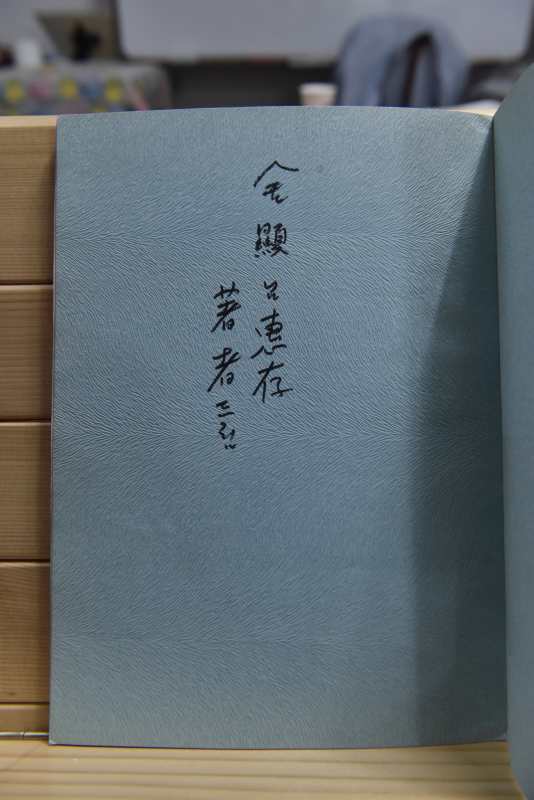 金顯 님 惠存
著者 드림